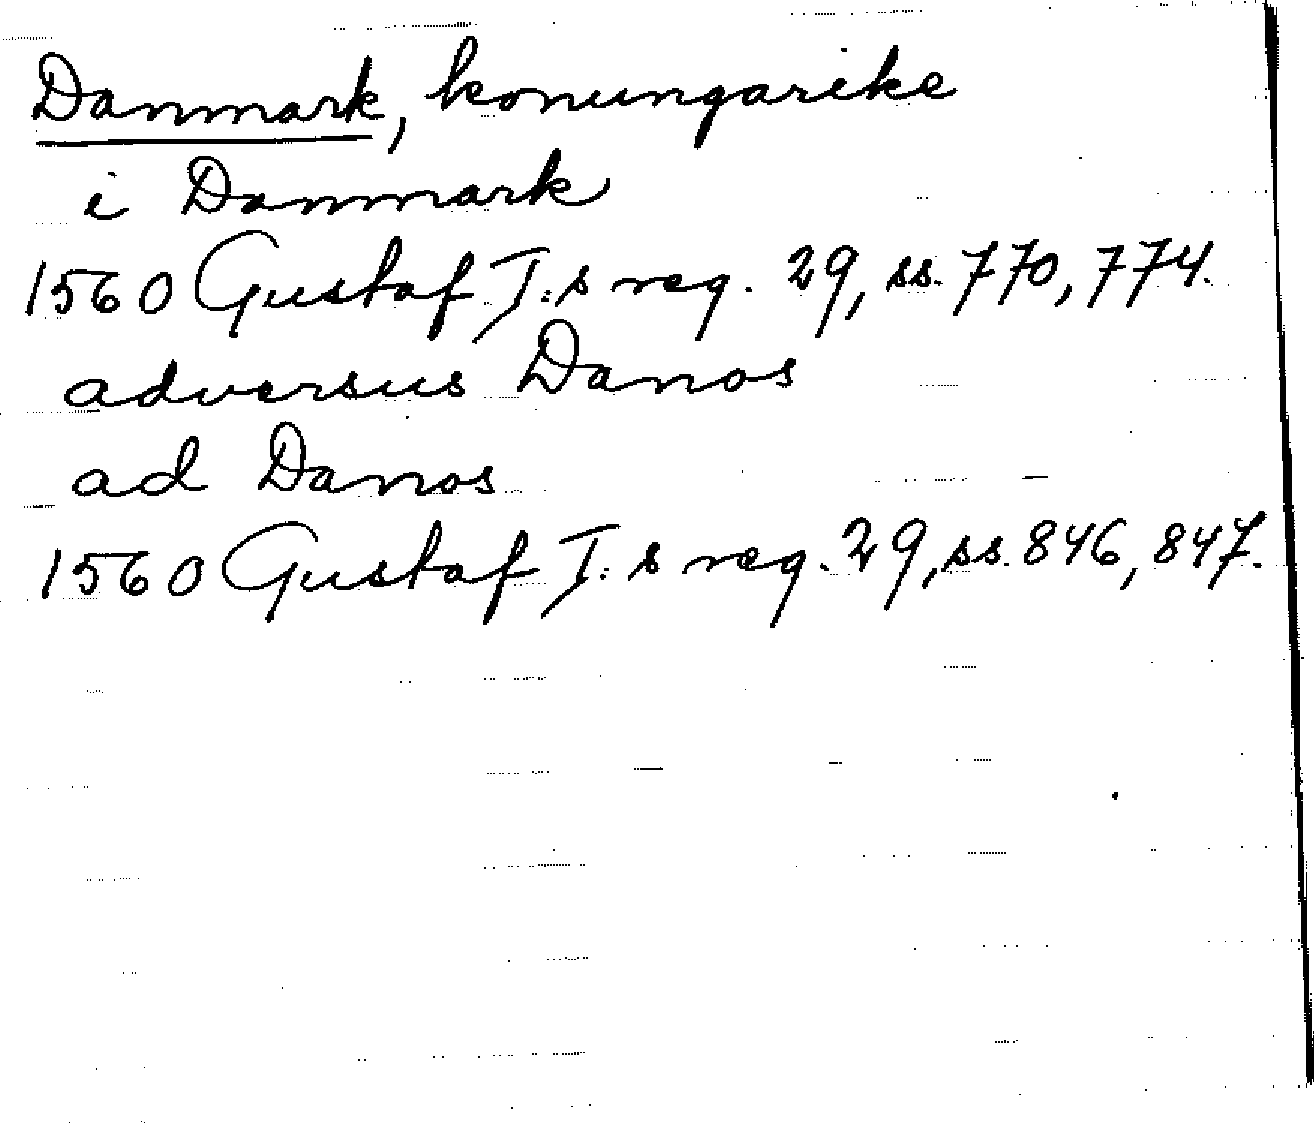 Danmark, konungarike
i Danmark
1560 Gustaf I:s reg. 29, ss. 770, 774.
adversus Danos
ad Danos
1560 Gustaf I:s reg. 29, ss. 846, 847.